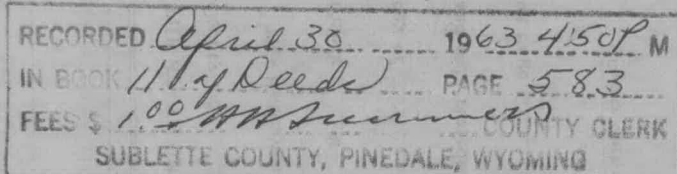 RECORDED April 30 1963 4:50 P M
IN BOOK 11 of Deeds PAGE 583
FEES $ 1.00 COUNTY CLERK
SUBLETTE COUNTY, PINEDALE, WYOMING